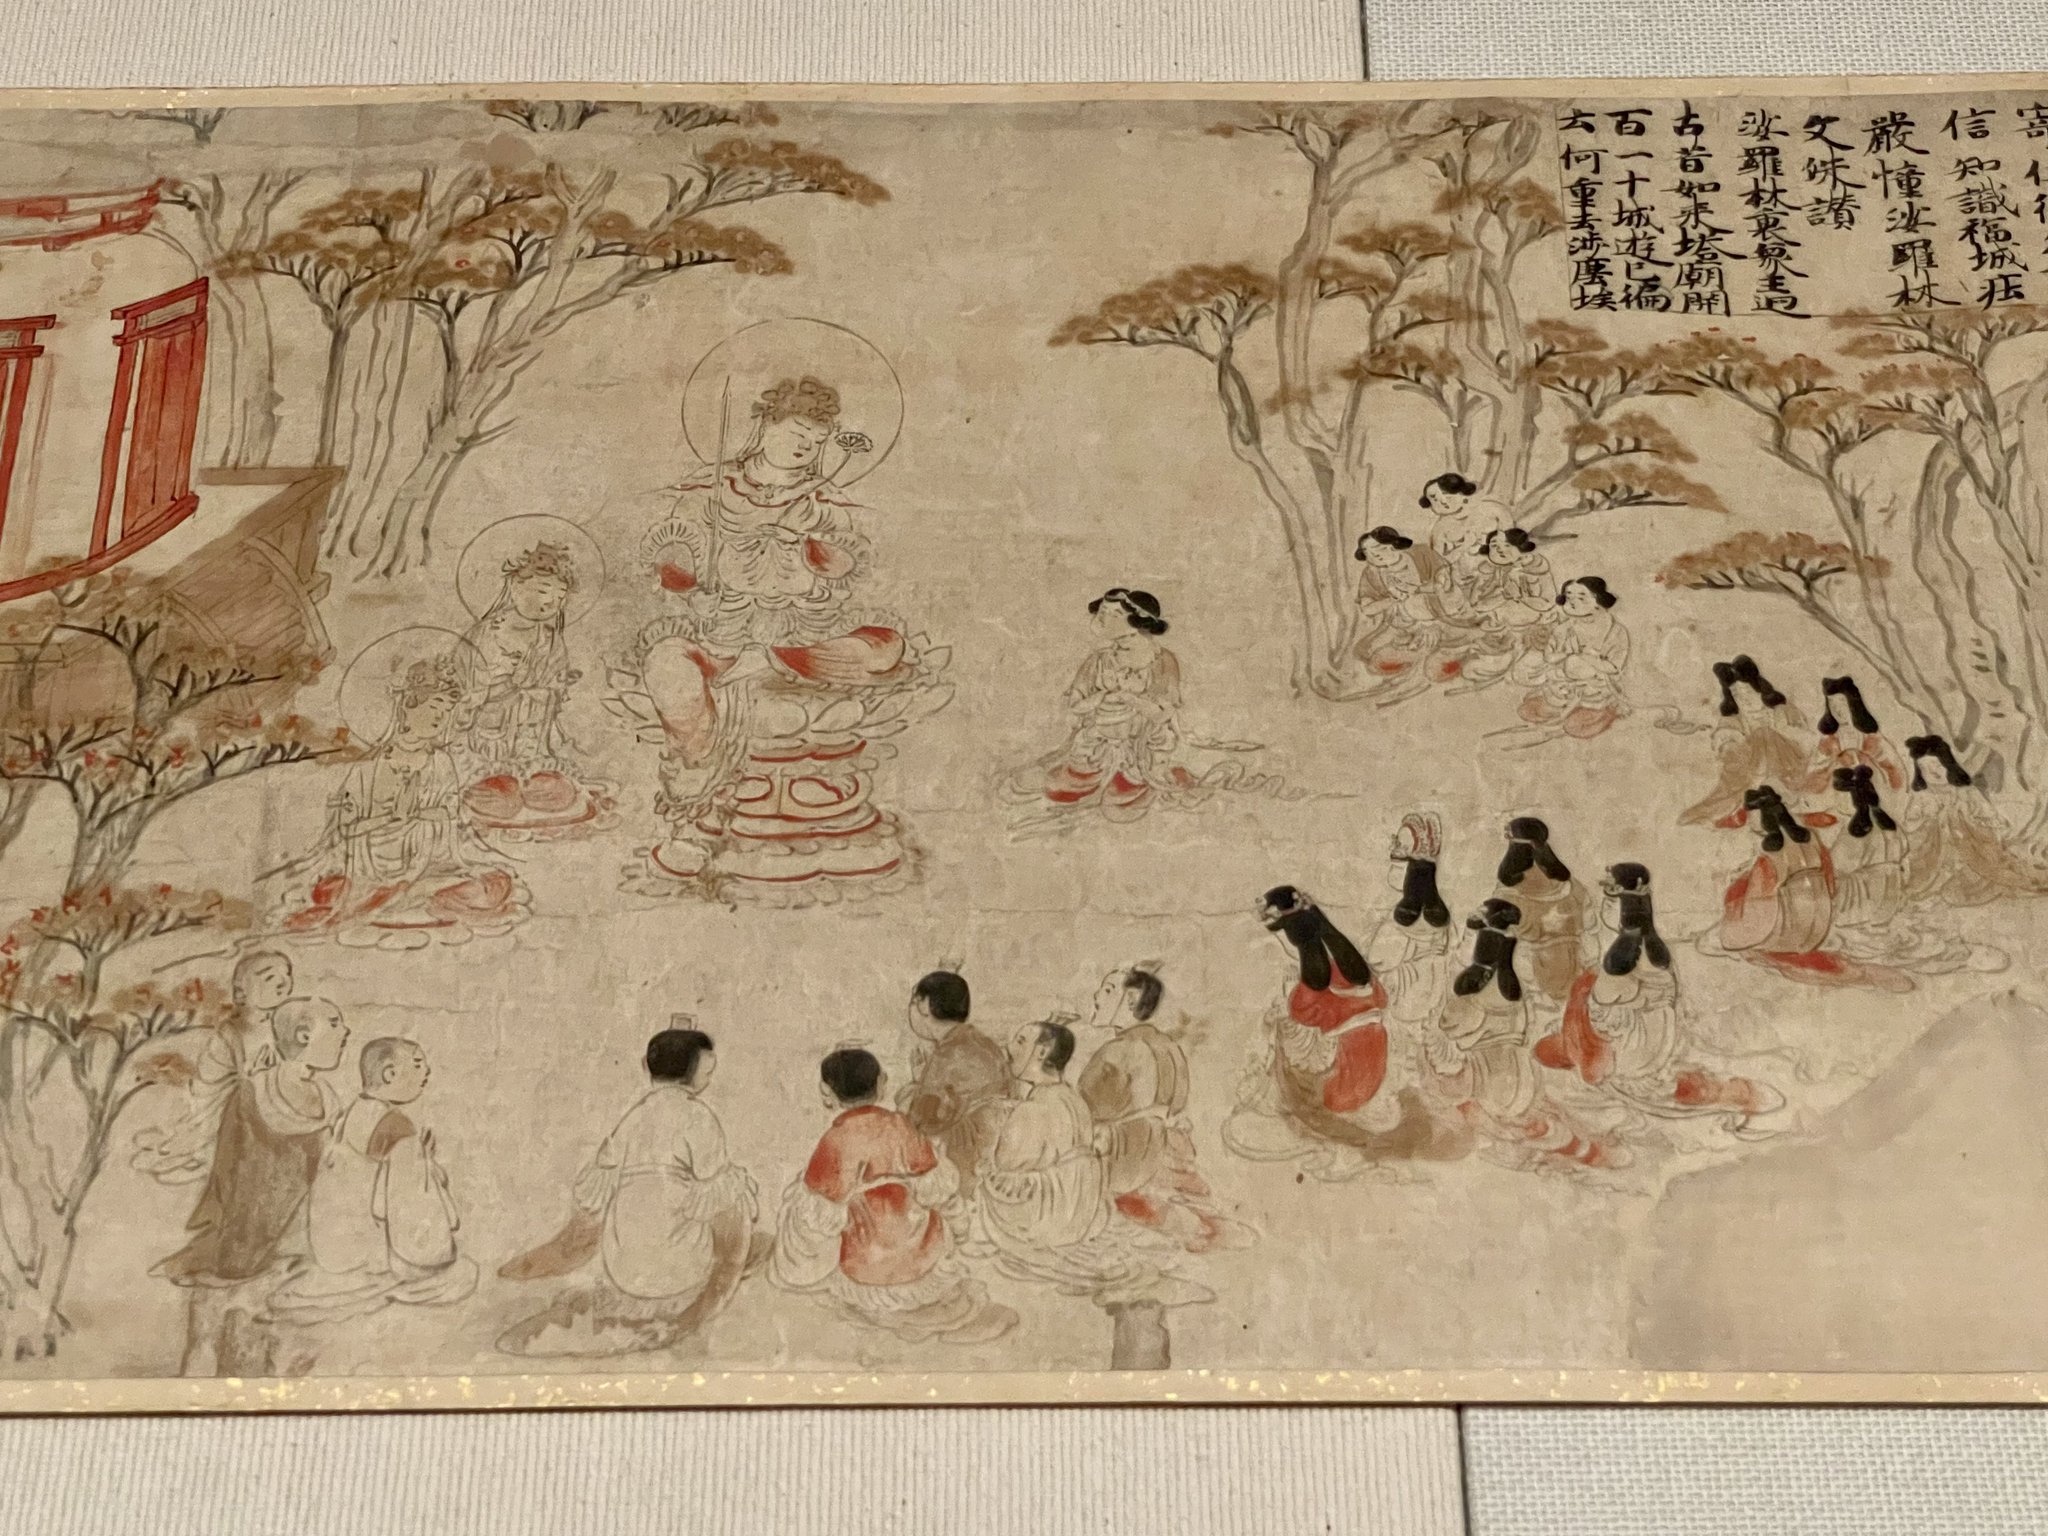 信知識福城庄
嚴幢娑羅林
文殊讃
娑羅林裏象王迴
古昔如来塔廟開
百一十城遊已徧
云何重去涉塵埃